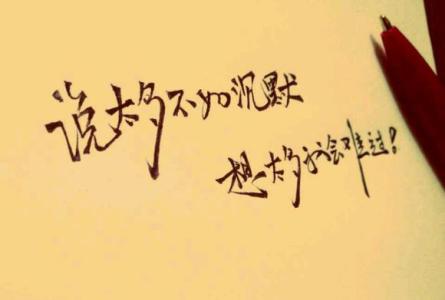 说太多不如沉默
想太多就会难过!